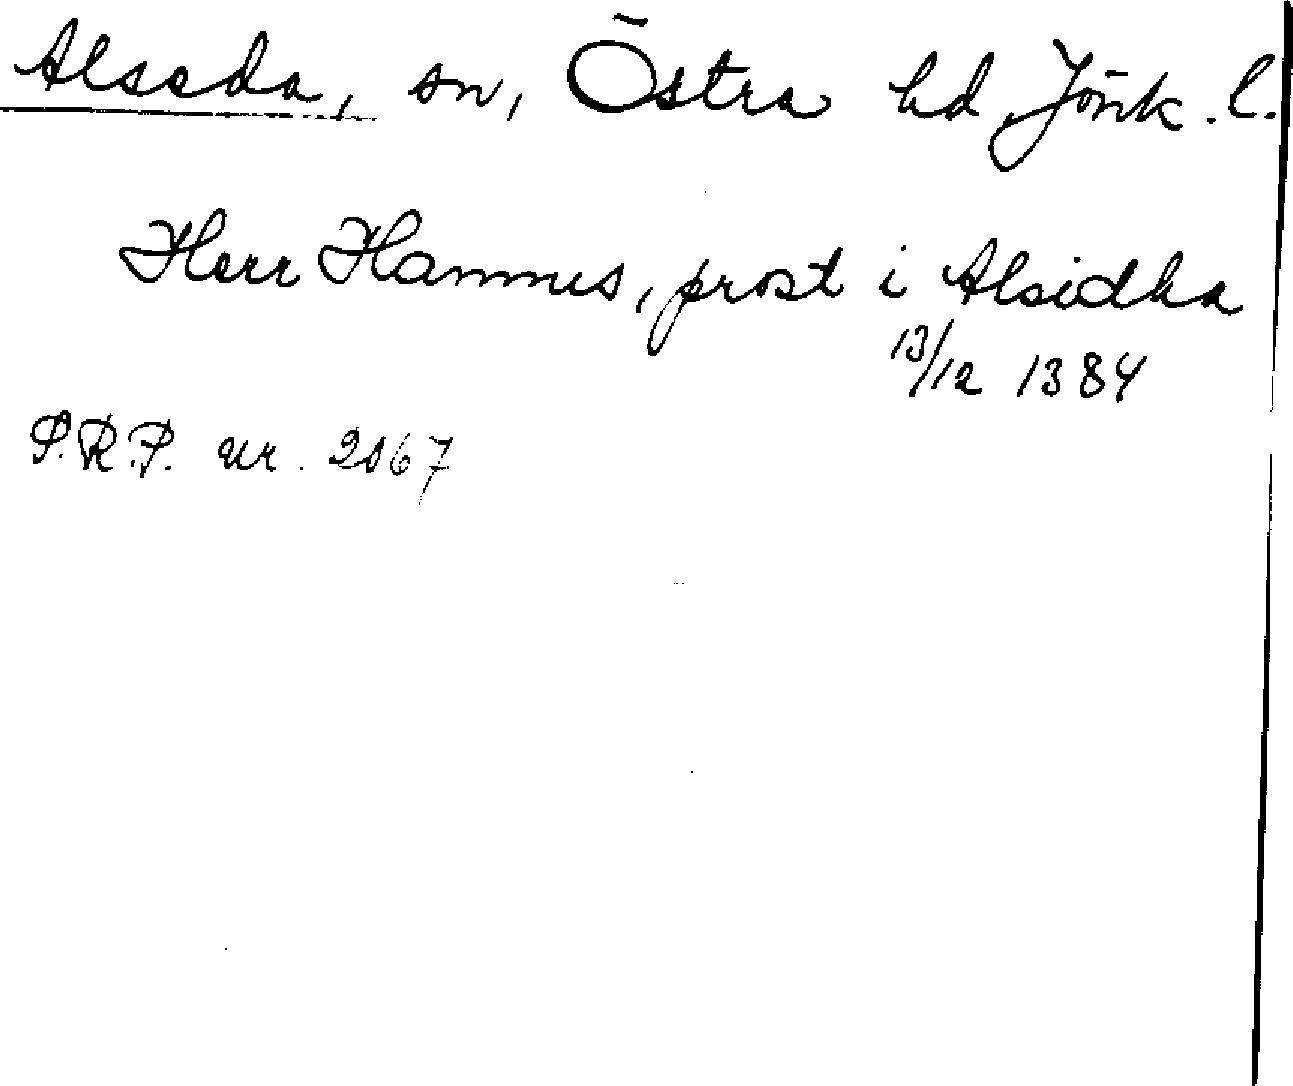 Alseda, sn, Östra hd, Jönk. l.
Herr Hannus, prost i Alsidha
13/12 1384
S.R.P. nr. 2167